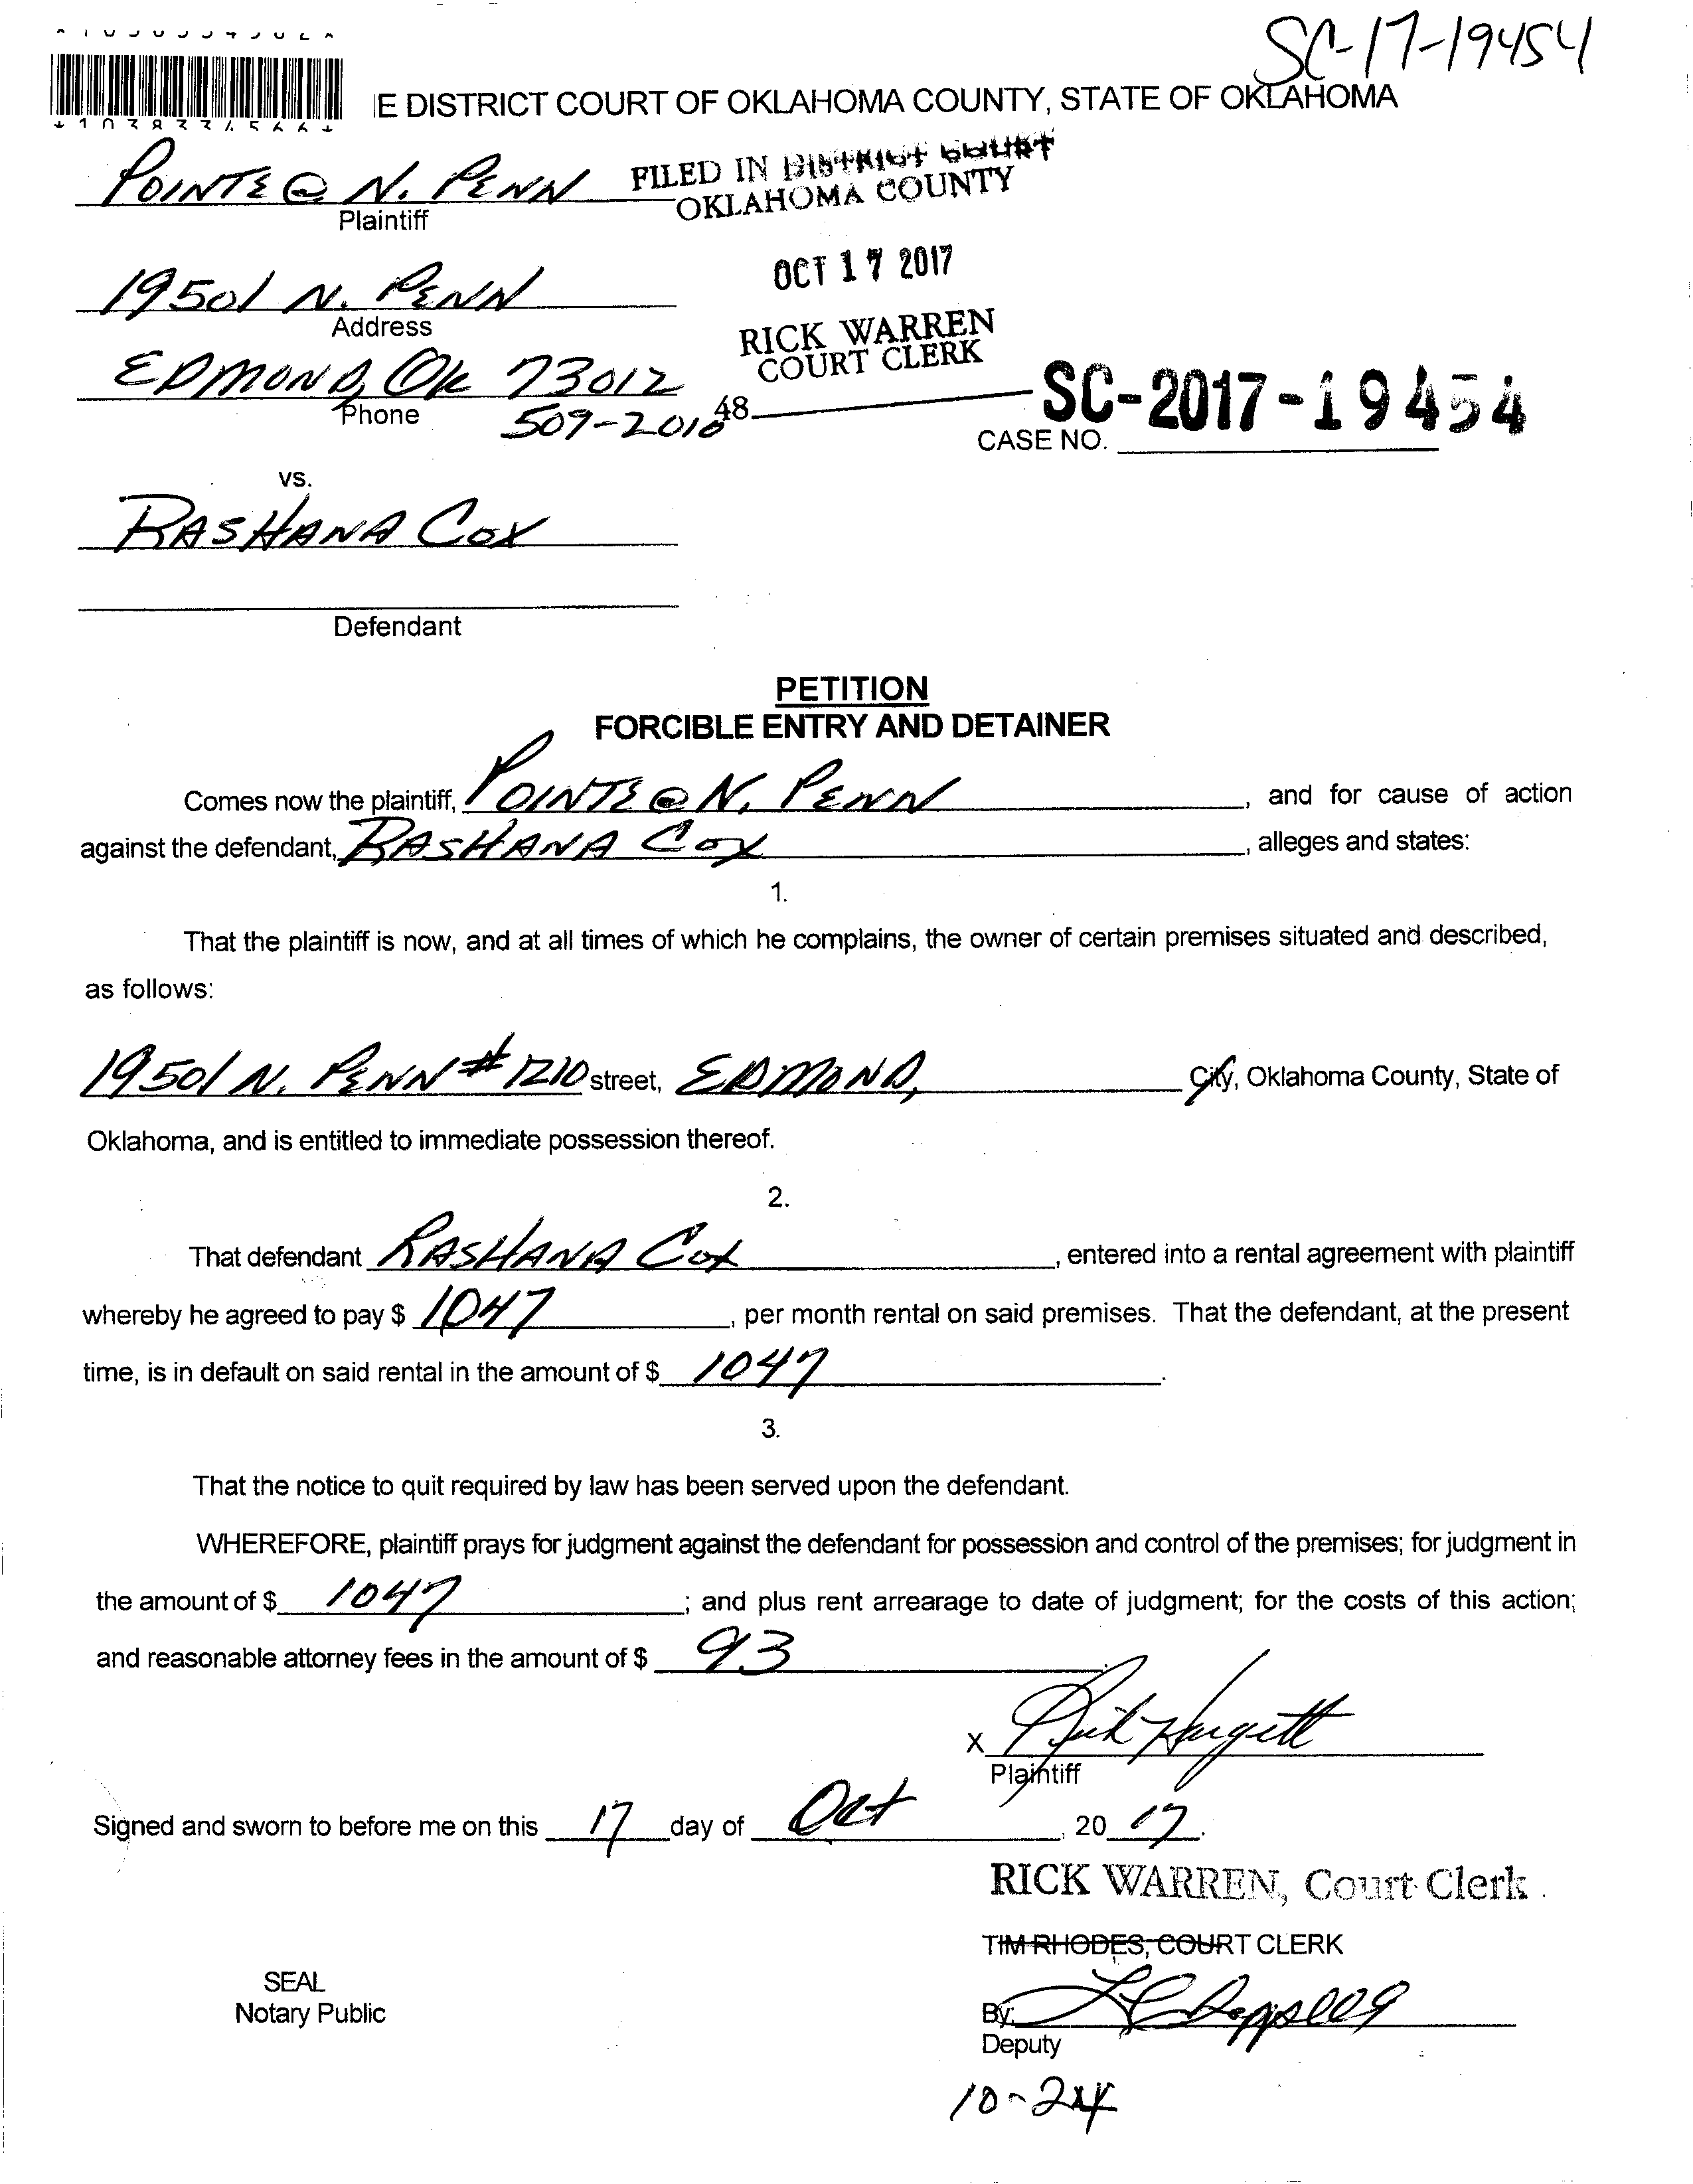 SC-17-19454
*1038334566*
E DISTRICT COURT OF OKLAHOMA COUNTY, STATE OF OKLAHOMA
POINTE @ N. PENN
Plaintiff
FILED IN DISTRICT COURT
OKLAHOMA COUNTY
OCT 17 2017
19501 N. PENN
Address
RICK WARREN
COURT CLERK
EDMOND, OK 73012
Phone 509-2010
48
SC-2017-19454
CASE NO.
vs.
RASHANA COX
Defendant
PETITION
FORCIBLE ENTRY AND DETAINER
Comes now the plaintiff, POINTE @ N. PENN, and for cause of action
against the defendant, RASHANA COX, alleges and states:
1.
That the plaintiff is now, and at all times of which he complains, the owner of certain premises situated and described,
as follows:
19501 N. PENN # 1210 street, EDMOND, City, Oklahoma County, State of
Oklahoma, and is entitled to immediate possession thereof.
2.
That defendant RASHANA COX, entered into a rental agreement with plaintiff
whereby he agreed to pay $ 1047, per month rental on said premises. That the defendant, at the present
time, is in default on said rental in the amount of $ 1047.
3.
That the notice to quit required by law has been served upon the defendant.
WHEREFORE, plaintiff prays for judgment against the defendant for possession and control of the premises; for judgment in
the amount of $ 1047; and plus rent arrearage to date of judgment; for the costs of this action;
and reasonable attorney fees in the amount of $ 93
X Rick Hargett
Plaintiff
Signed and sworn to before me on this 17 day of Oct, 20 17.
RICK WARREN, Court Clerk.
TIM RHODES, COURT CLERK
SEAL
Notary Public
By:
Deputy
10-24